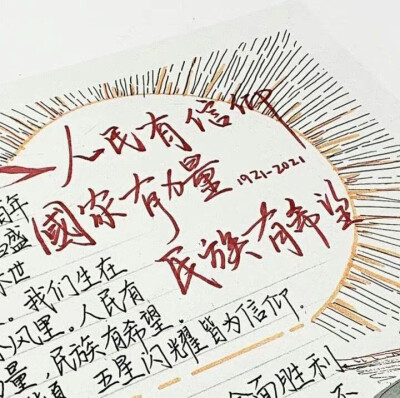 人民有信仰
國家有力量 1921-2021
民族有希望
年
盛
世
。我们生在
风里。人民有
量,民族有希望.
五星闪耀皆为信仰.
全面胜利
不